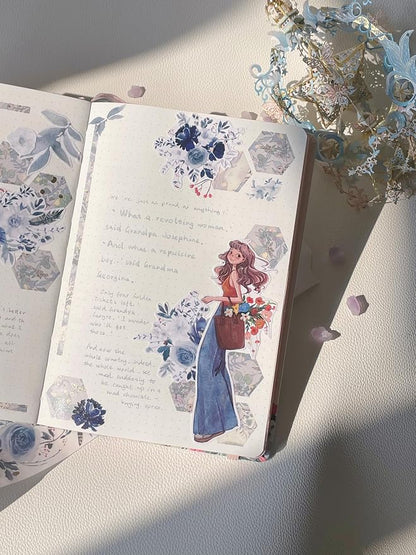 a better
and
what I
does
all
we're just as proud as anything!
" What a revolting woman,
said Grandpa Josephine.
" And what a repulsive
boy. : said Grandma
Georgina.
" Only four Golden
Tickets left.
said Grandpa
George. " I wonder
who'll get
those.
And now the
whole country, indeed,
the whole world
seemed suddenly to
be caught up in a
mad chocolate -
buying spree.